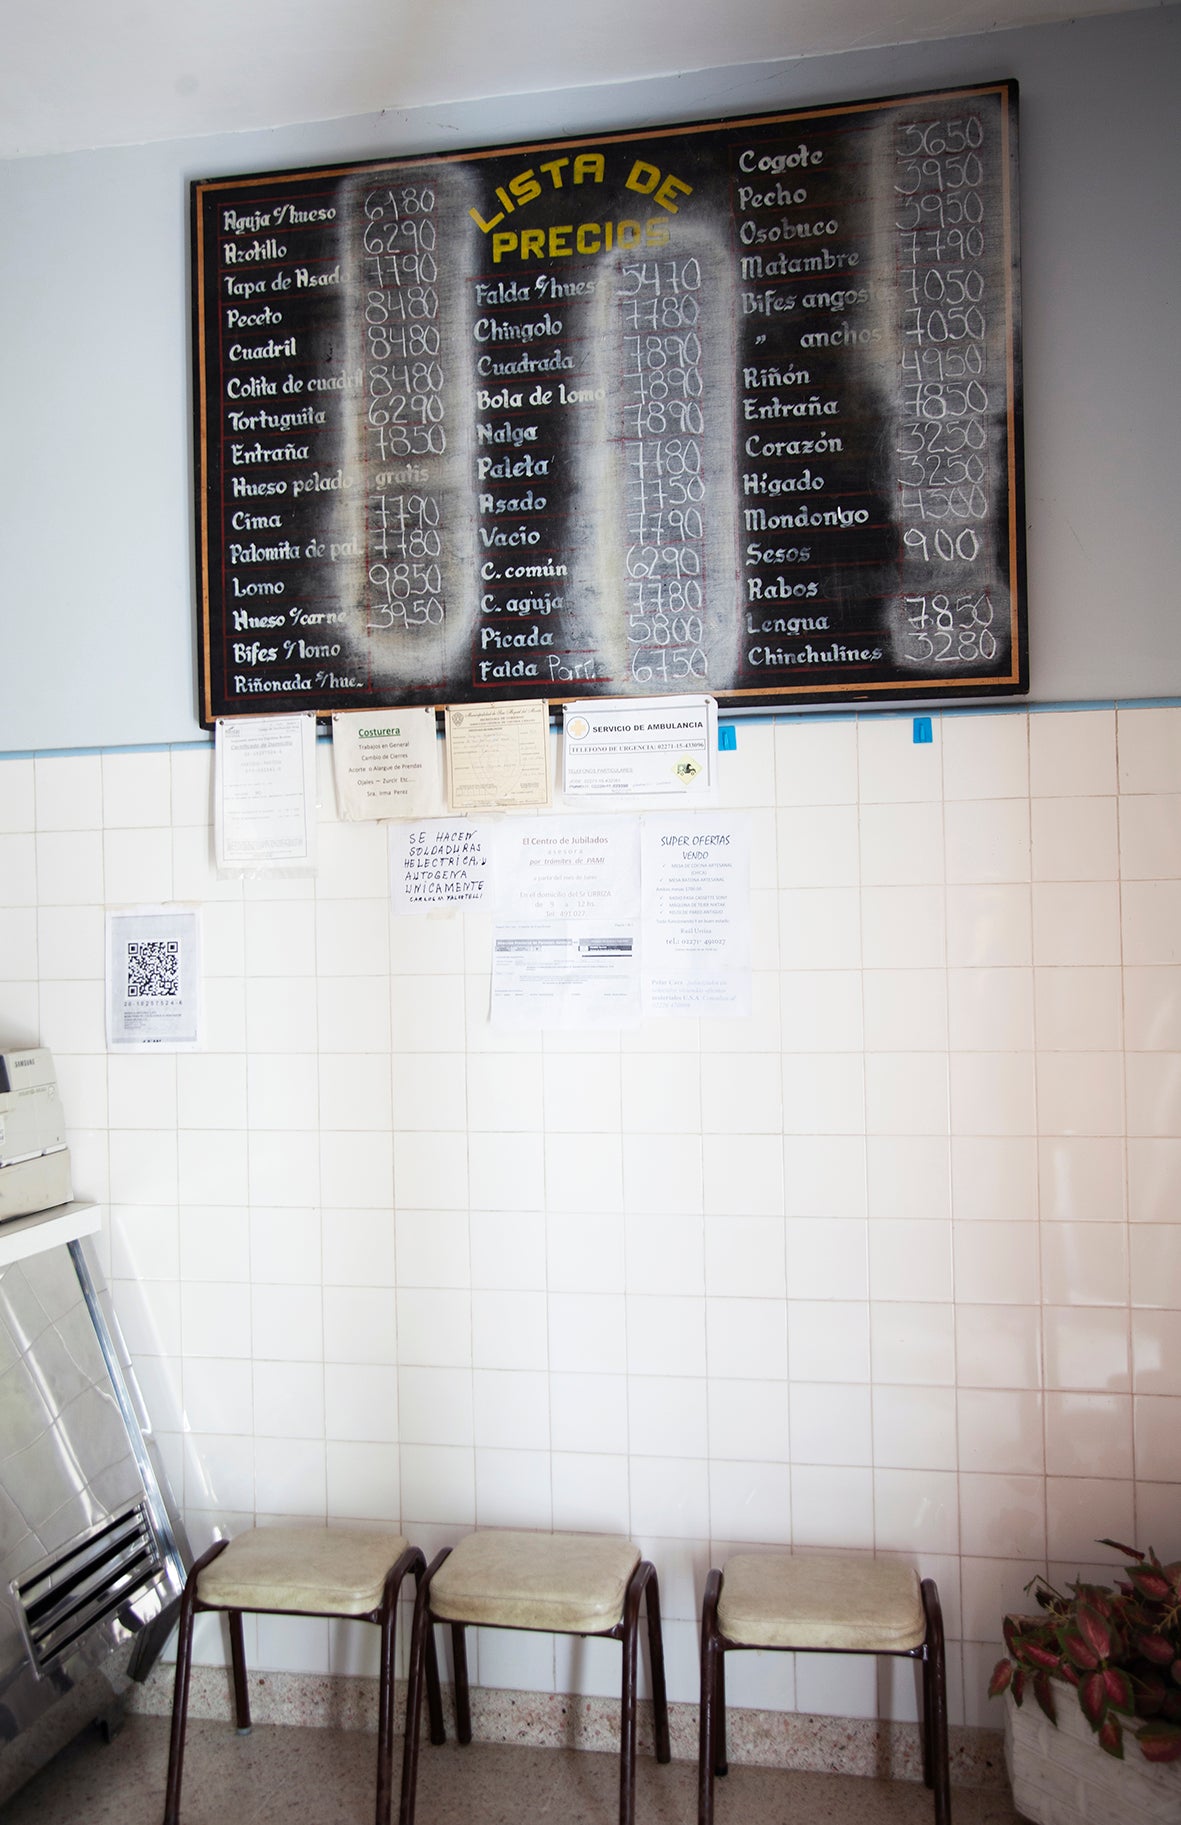 LISTA DE
PRECIOS
Aguja c/hueso 6180
Azotillo 6290
Tapa de Asado 7790
Peceto 8480
Cuadril 8480
Colita de cuadril 8480
Tortuguita 6290
Entraña 7850
Hueso pelado gratis
Cima 7790
Palomita de pal. 7780
Lomo 9850
Hueso c/carne 3950
Bifes c/lomo
Riñonada s/hue.
Falda c/hues 5470
Chingolo 7780
Cuadrada 7890
Bola de lomo 7890
Nalga 7890
Paleta 7780
Asado 7750
Vacío 7790
C. común 6290
C. aguja 7780
Picada 5800
Falda Parr. 6750
Cogote 3650
Pecho 3950
Osobuco 3950
Matambre 7790
Bifes angostos 7050
" anchos 7050
Riñón 4950
Entraña 7850
Corazón 3250
Hígado 3250
Mondongo 4300
Sesos 900
Rabos
Lengua 7850
Chinchulines 3280
Certificado de Domicilio
Costurera
Trabajos en General
Cambio de Cierres
Acorte o Alargue de Prendas
Ojales - Zurcir Etc....
Sra. Irma Perez
SERVICIO DE AMBULANCIA
TELEFONO DE URGENCIA: 02271-15-433096
TELEFONOS PARTICULARES
SE HACEN
SOLDADURAS
HELECTRICA, Y
AUTOGENA
UNICAMENTE
El Centro de Jubilados
asesora
por trámites de PAMI
a partir del mes de Junio
En el domicilio del Sr URRIZA
de 9 a 12 hs.
Tel: 491 027.
SUPER OFERTAS
VENDO
MESA DE COCINA ARTESANAL
MESA RATONA ARTESANAL
RADIO PASA CASSETTE SONY
MAQUINA DE TEJER
RELOJ DE PARED ANTIGUO
Raúl Urriza
tel.: 02271- 491027
20-10257524-6
SAMSUNG